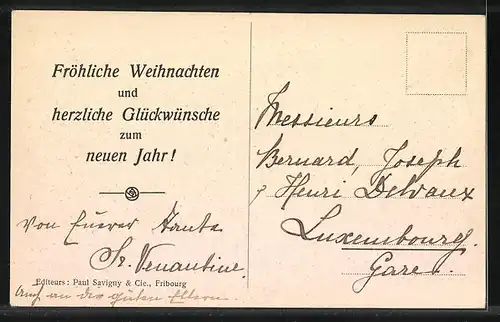 Fröhliche Weihnachten
und
herzliche Glückwünsche
zum
neuen Jahr!
von Eurer Tante
Sr. Venantine.
Editeurs: Paul Savigny & Cie., Fribourg
auch an die guten Eltern.
Messieurs
Bernard, Joseph
& Henri Delvaux
Luxembourg.
Gare.